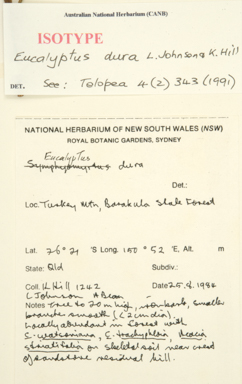 Australian National Herbarium (CANB)
ISOTYPE
Eucalyptus dura L. Johnson & K. Hill
DET. See: Telopea 4(2) 343 (1991)
NATIONAL HERBARIUM OF NEW SOUTH WALES (NSW)
ROYAL BOTANIC GARDENS, SYDNEY
Eucalyptus
dura
Det.:
Loc. Turkey Mtn, Barakula State Forest
Lat. 26° 21 'S Long. 150° 52 'E. Alt. m
State: Qld Subdiv.:
Coll. K Hill 1242 Date 25.8.1984
L Johnson A Bean
Notes Tree to 20m high, ironbark, smaller
branches smooth (<2cm diam),
Locally abundant in forest with
E. watsoniana, E. trachyphloia, Acacia
on skeletal soil near crest
of sandstone residual hill.